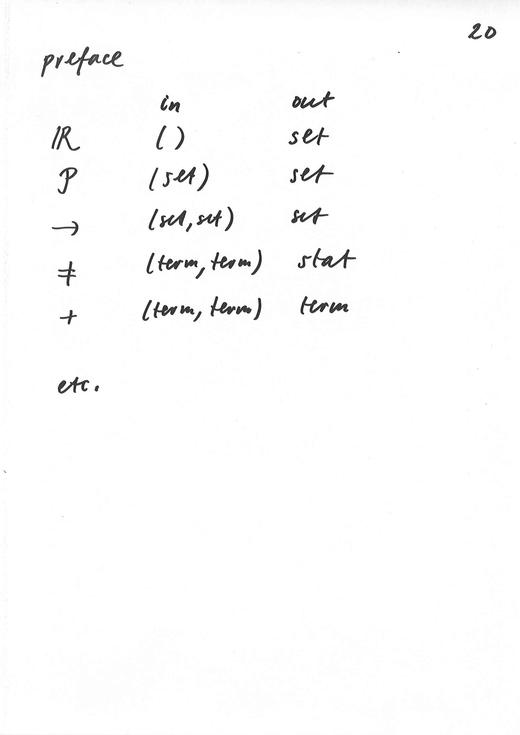 20
preface
in out
ℝ () set
P (set) set
→ (set, set) set
≠ (term, term) stat
+ (term, term) term
etc.